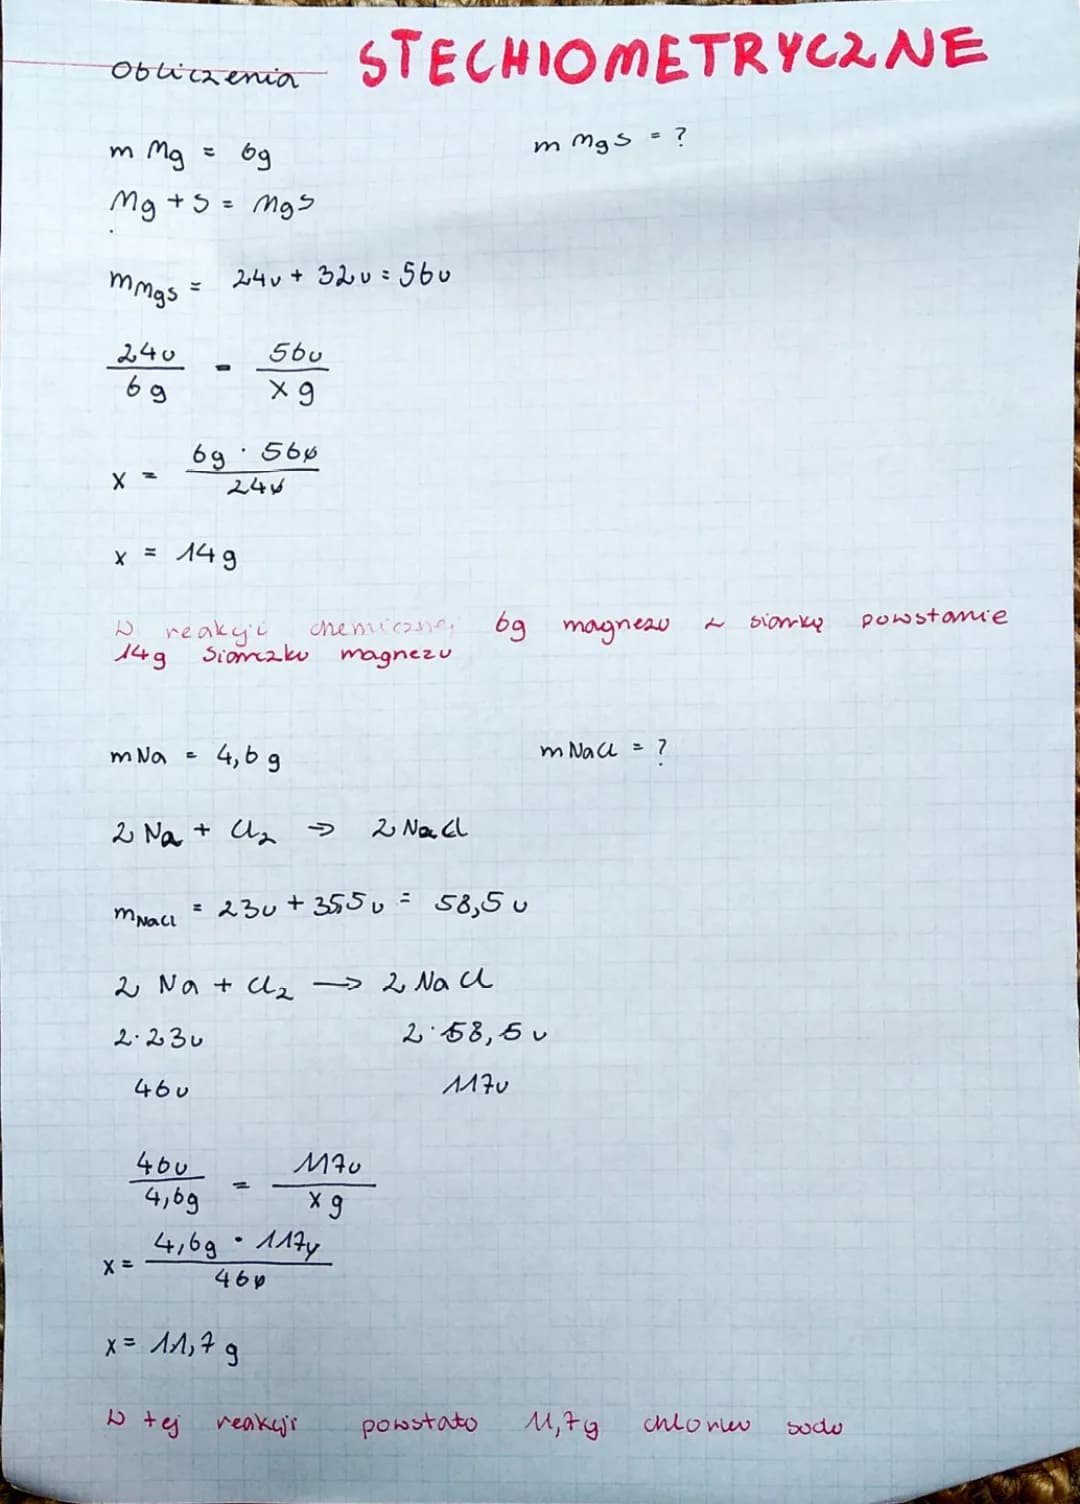 Obliczenia STECHIOMETRYCZNE
m Mg = 6g m MgS = ?
Mg + S = MgS
mMgS = 24u + 32u = 56u
24u/6g - 56u/x g
x = 6g · 56u/24u
x = 14g
W reakcji chemicznej 6g magnezu z siarką powstanie
14g siarczku magnezu
mNa = 4,6g mNaCl = ?
2 Na + Cl₂ → 2 NaCl
mNaCl = 23u + 35,5u = 58,5u
2 Na + Cl₂ → 2 NaCl
2·23u 2·58,5u
46u 117u
46u/4,6g = 117u/x g
x = 4,6g · 117u/46u
x = 11,7g
W tej reakcji powstało 11,7g chlorku sodu